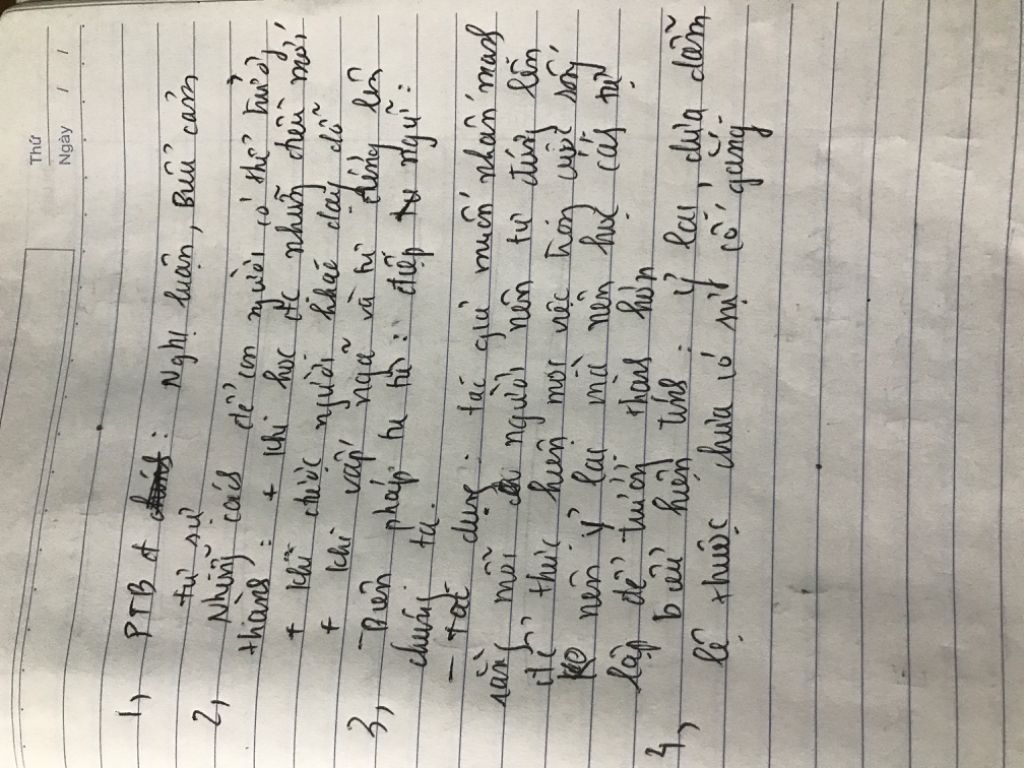 Thứ
Ngày / /
1, PTBĐ : Nghị luận, Biểu cảm
tự sự
2, Những cách để con người có thể trưởng
thành : + khi học đc những điều mới
+ khi được người khác dạy dỗ
+ khi vấp ngã và tự đứng lên
3, - Biện pháp tu từ : điệp ngữ :
chúng ta.
- tác dụng : tác giả muốn nhấn mạnh
rằng mỗi người nên tự đứng lên
để thực hiện mọi việc trong cuộc sống
nên ỷ lại mà nên học cách tự
lập để tuổi thành hơn
4, biểu hiện : ỷ lại, dựa dẫm
lệ thuộc chưa có sự cố gắng.